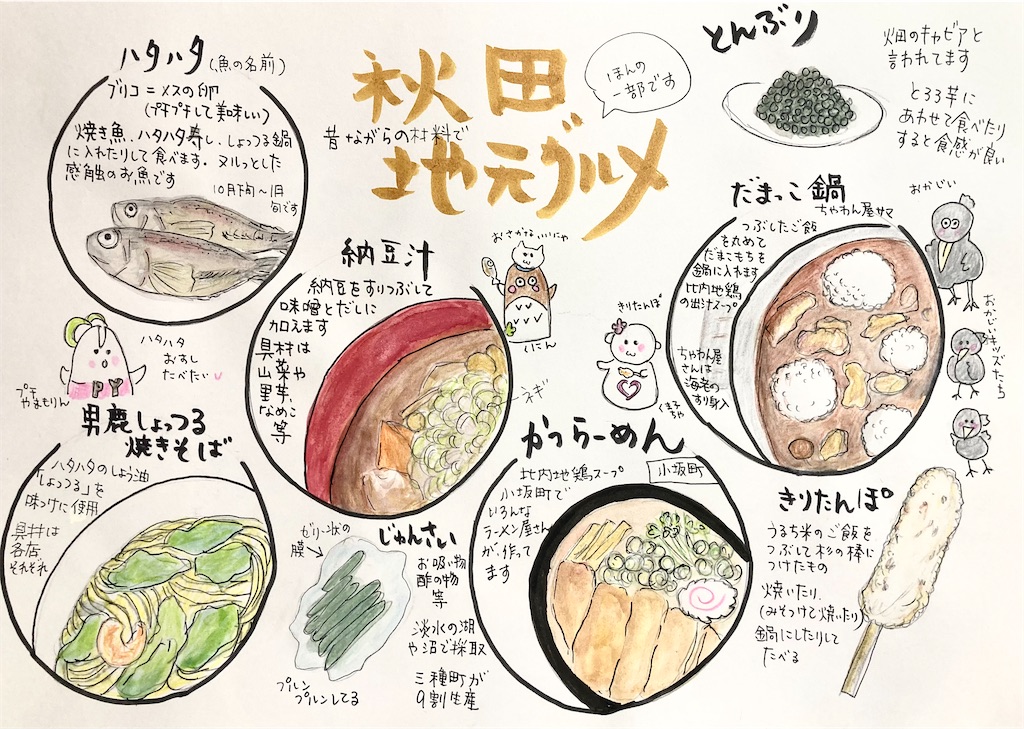 秋田
地元グルメ
昔ながらの材料で
ほんの
一部です
ハタハタ(魚の名前)
ブリコ=メスの卵
(プチプチして美味しい)
焼き魚、ハタハタ寿し、しょっつる鍋
に入れたりして食べます。ヌルっとした
感触のお魚です
10月下旬〜1月
旬です
とんぶり
畑のキャビアと
言われてます
とろろ芋に
あわせて食べたり
すると食感が良い
納豆汁
納豆をすりつぶして
味噌とだしに
加えます
具材は
山菜や
里芋、
なめこ
等
ネギ
おさかな、いいにゃ
くにん
だまっこ鍋
ちゃわん屋サマ
つぶしたご飯
を丸めて
だまこもちを
鍋に入れます
比内地鶏
の出汁スープ
ちゃわん屋
さんは
海老の
すり身入
おかしい
おかしいキッズたち
ハタハタ
おすし
たべたい
PY
プチ
やまもりん
きりたんぽ
くま子ちゃ
男鹿しょっつる
焼きそば
ハタハタのしょう油
「しょっつる」を
味つけに使用
具材は
各店
それぞれ
じゅんさい
ゼリー状の
膜→
お吸い物
酢の物
等
淡水の湖
や沼で採取
三種町が
9割生産
プルン
プルンしてる
かつらーめん
小坂町
比内地鶏スープ
小坂町で
いろんな
ラーメン屋さん
が、作って
ます
きりたんぽ
うるち米のご飯を
つぶして杉の棒に
つけたもの
焼いたり、
(みそつけて焼いたり)
鍋にしたりして
たべる